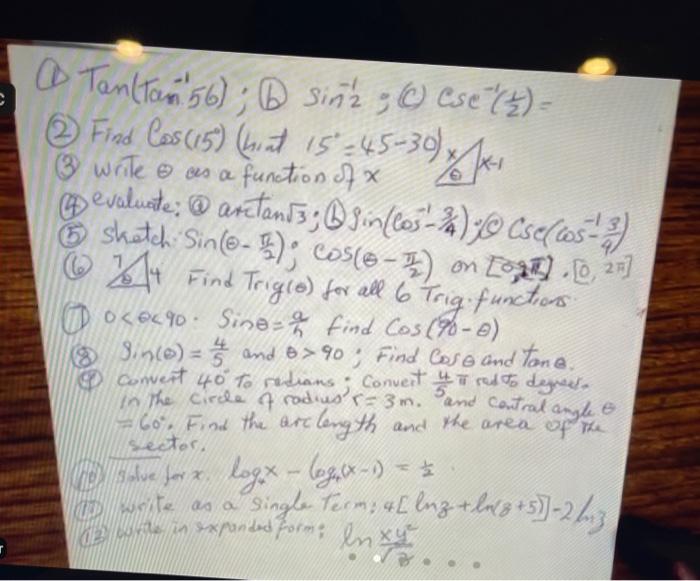 ① Tan(Tan⁻¹56) ; ⓑ Sin⁻¹2 ; ⓒ Csc⁻¹(½) =
② Find Cos(15°) (hint 15° = 45-30)
③ write θ as a function of x x θ x-1
④ evaluate: ⓐ arctan√3 ; ⓑ Sin(Cos⁻¹-¾) ; ⓒ Csc(Cos⁻¹-¾)
⑤ sketch: Sin(θ-π/2) ; Cos(θ-π/2) on [0, 2π]
⑥ 7 4 θ Find Trig(θ) for all 6 Trig. functions
⑦ 0<θ<90. Sinθ = a/h find Cos(90-θ)
⑧ Sin(θ) = 4/5 and θ > 90 ; Find Cosθ and Tanθ.
⑨ Convert 40° to radians ; Convert 4/5 π rad to degrees.
in the Circle of radius r = 3 m. and central angle θ
= 60°. Find the arc length and the area of the
sector.
⑩ Solve for x. log₄x - log₄(x-1) = ½.
⑪ write as a single Term: 4[ln z + ln(z+5)] - 2 ln z
⑫ write in expanded form: ln xy²/√z